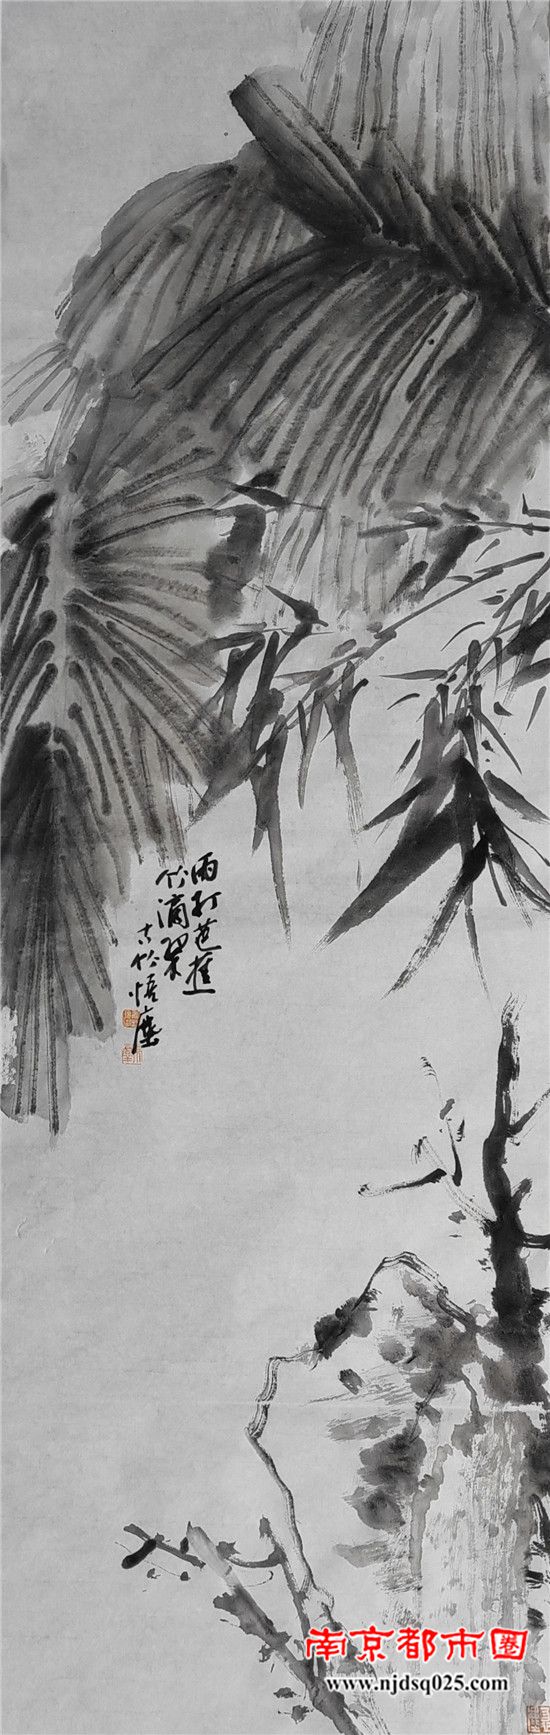 雨打芭蕉
竹滴翠
古竹悟尘
南京都市圈
www.njdsq025.com